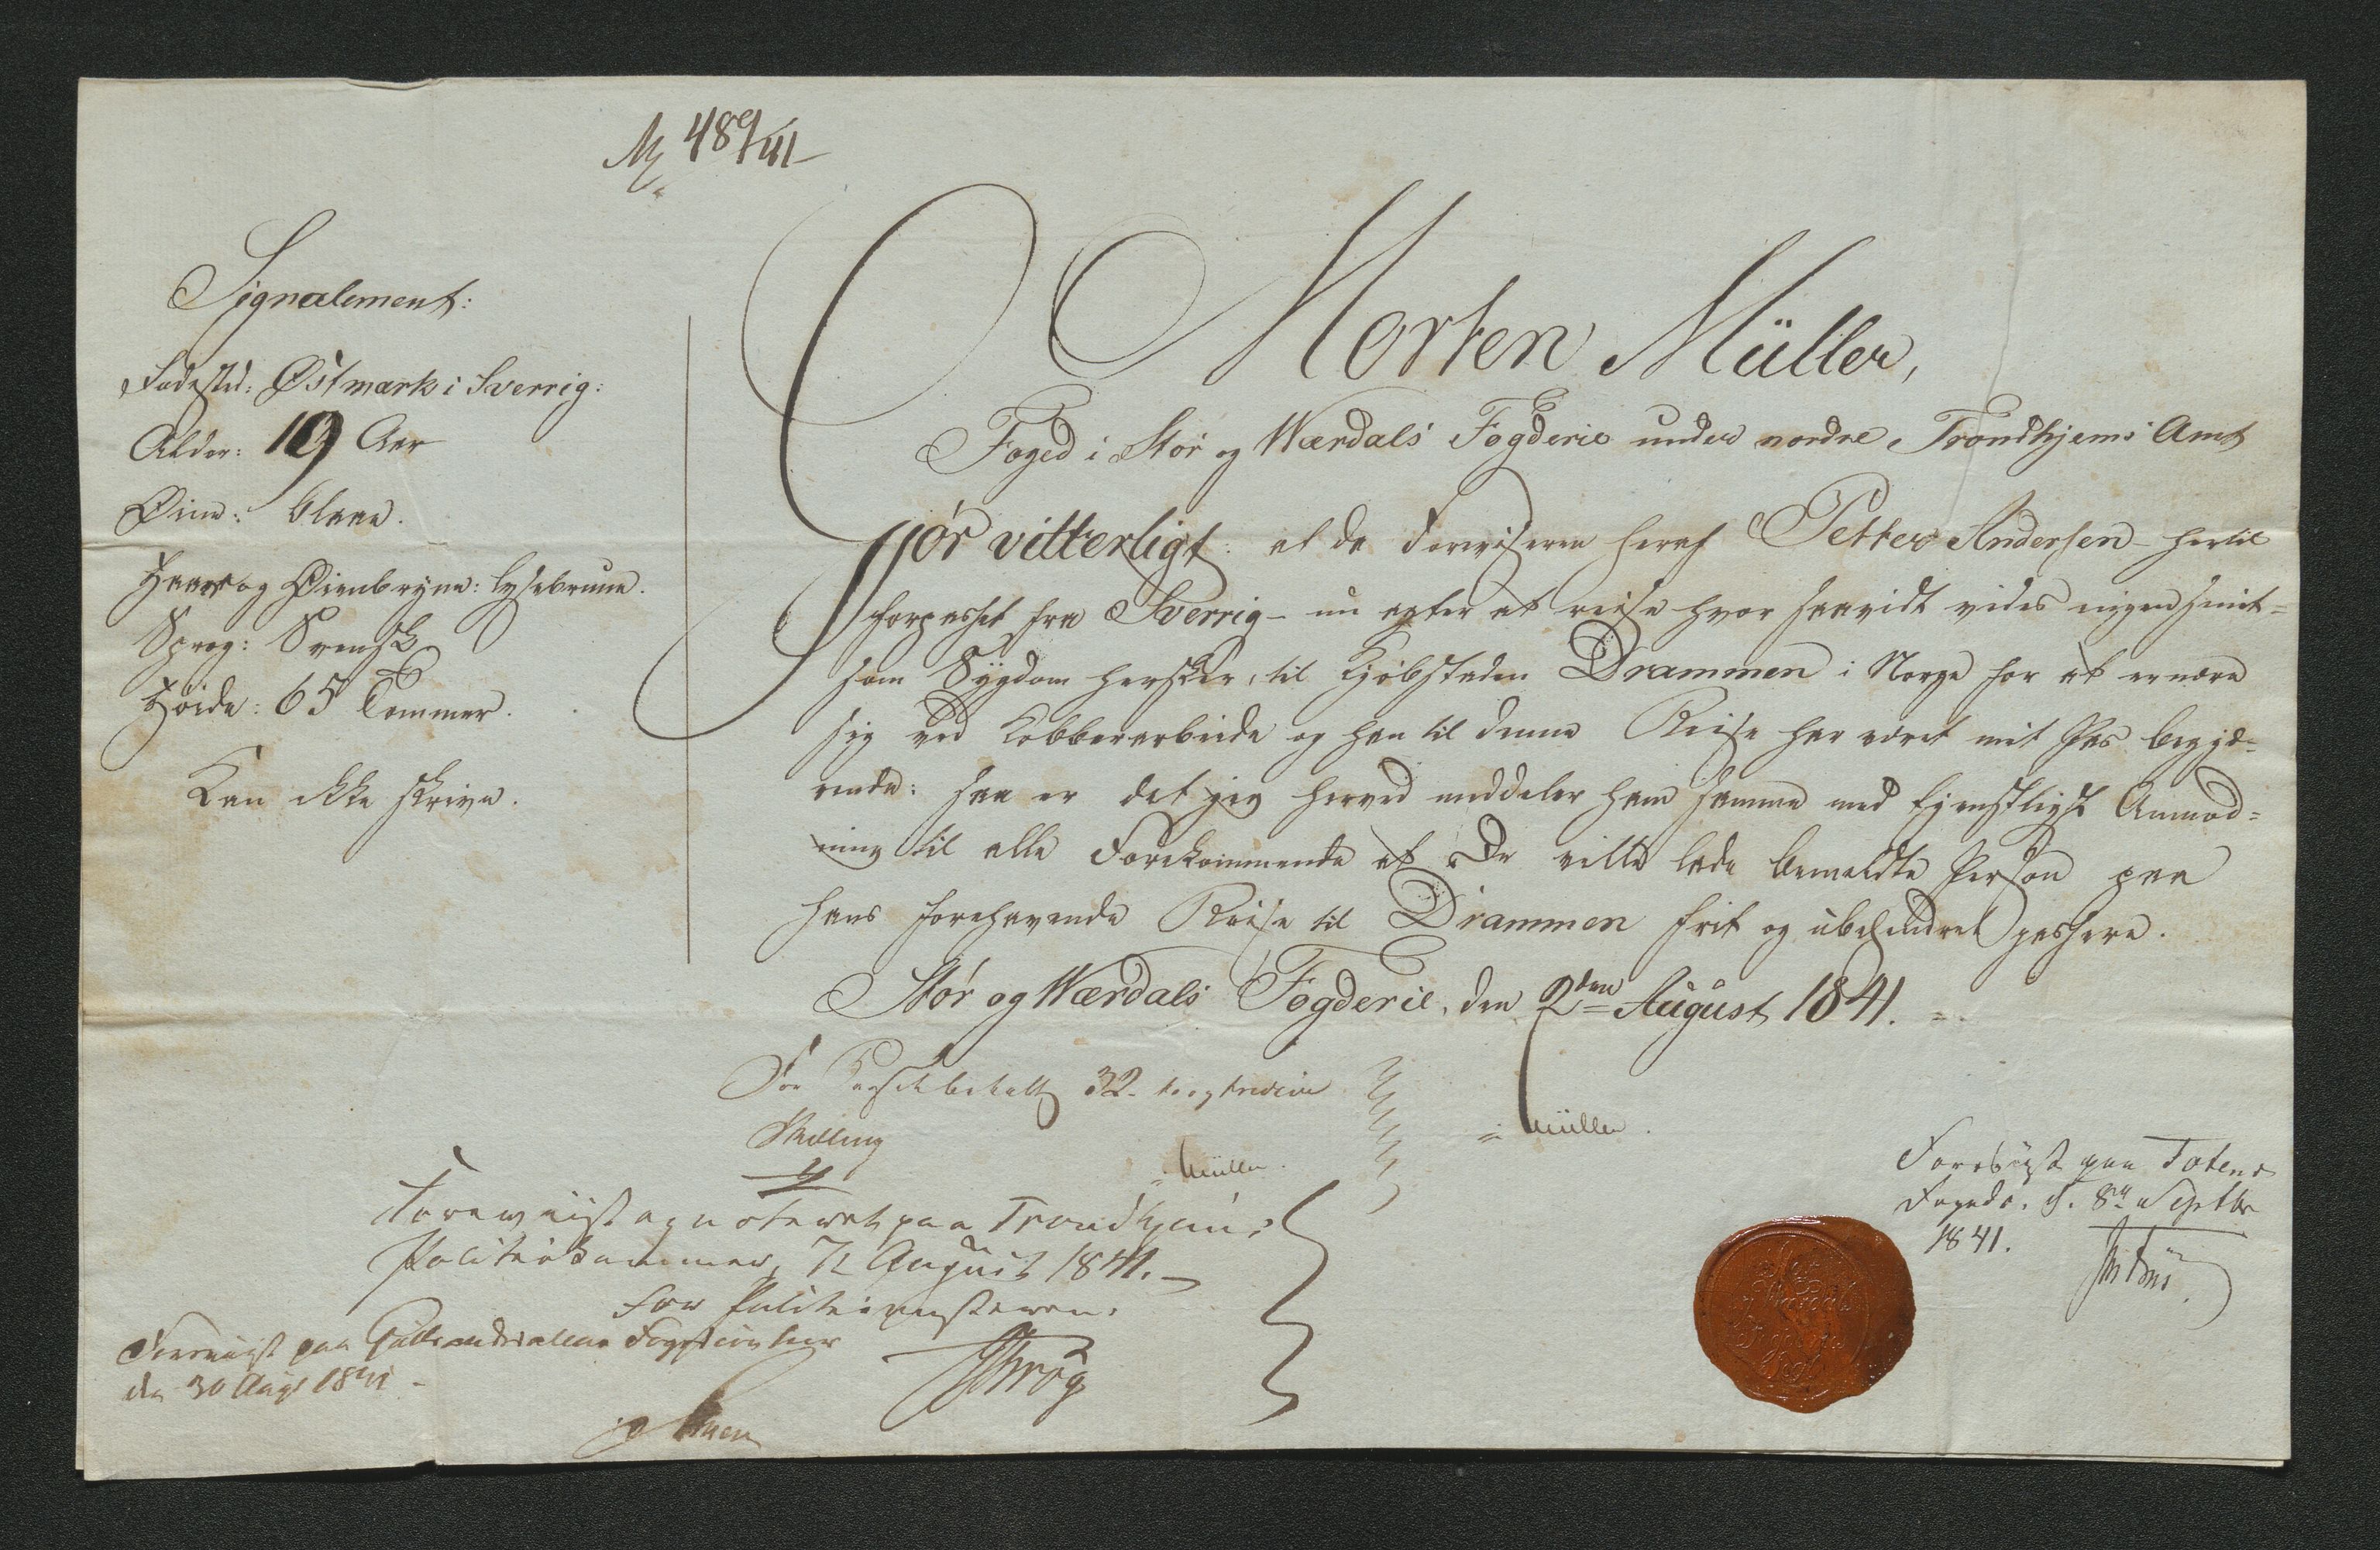 No 489/41
Signalement:
Fødested: Østmark i Sverrig:
Alder: 19 Aar
Øine: blaae.
Haar og Øienbryne: lysebrune.
Sprog: Svensk
Høide: 65 Tommer.
Kan ikke skrive.
Morten Müller,
Foged i Stør og Wærdals Fogderie under nordre Trondhjems Amt
Gjør vitterligt: at da Foreviseren heraf Petter Andersen - hertil
forpasset fra Sverrig - nu agter at reise hvor saavidt vides ingen smit=
som Sygdom hersker, til Kjøbstaden Drammen i Norge for at ernære
sig ved Kobberarbeide og han til denne Reise har været mit Pas begjæ=
rende: saa er det jeg herved meddeler ham samme med tjenstligst Anmod=
ning til alle Forekommende at De ville lade bemeldte Person paa
hans forehavende Reise til Drammen frit og ubehindret passere.
Stør og Wærdals Fogderie, den 2den August 1841.
Müller.
For Passet betalt 32 - to og tredive
Skilling
Müller.
Foreviist og noteret paa Trondhjems
Politiekammer, 7 August 1841.
For Politiemesteren.
Foreviist paa Gulbrandsdalens Fogdcontoir
den 30 Aug 1841
Foreviist paa Totens
Fogdc. d. 8 Septbr
1841.